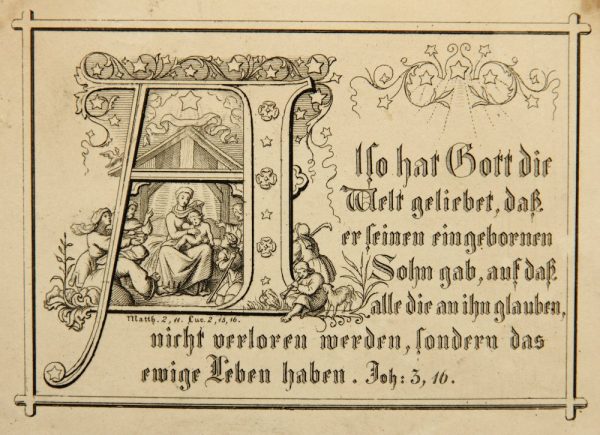 Also hat Gott die
Welt geliebet, daß
er seinen eingebornen
Sohn gab, auf daß
alle die an ihn glauben,
Matth. 2, 11. Luc. 2, 15, 16.
nicht verloren werden, sondern das
ewige Leben haben. Joh: 3, 16.